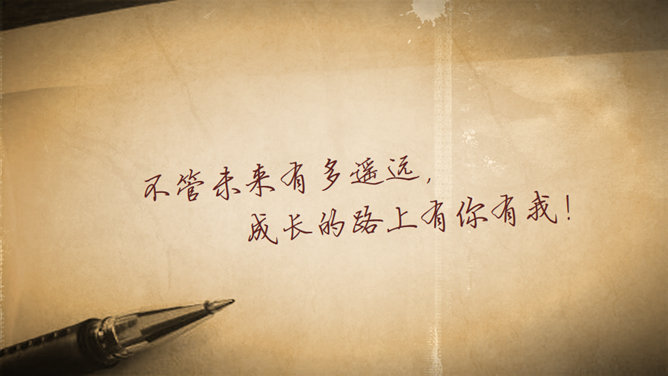 不管未来有多遥远，
成长的路上有你有我！